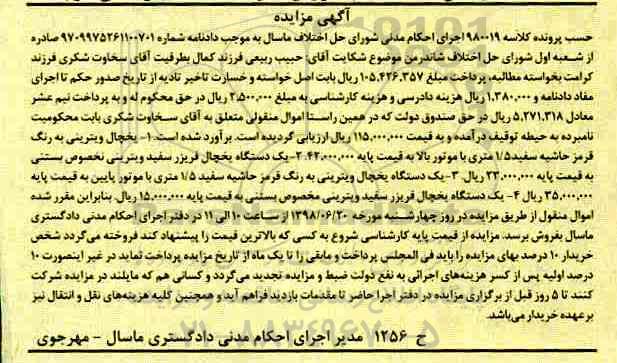 آگهی مزایده
حسب پرونده کلاسه ۹۸۰۰۱۹ اجرای احکام مدنی شورای حل اختلاف ماسال به موجب دادنامه شماره ۹۷۰۹۹۷۵۲۶۱۱۰۰۷۰۱ صادره
از شعبه اول شورای حل اختلاف شاندرمن موضوع شکایت آقای: حبیب ربیعی فرزند کمال بطرفیت آقای سخاوت شکری فرزند
کرامت بخواسته مطالبه، پرداخت مبلغ ۱۰۵,۴۲۶,۳۵۷ ریال بابت اصل خواسته و خسارت تاخیر تادیه از تاریخ صدور حکم تا اجرای
مفاد دادنامه و ۱,۳۸۰,۰۰۰ ریال هزینه دادرسی و هزینه کارشناسی به مبلغ ۲,۵۰۰,۰۰۰ ریال در حق محکوم له و به پرداخت نیم عشر
معادل ۵,۲۷۱,۳۱۸ ریال در حق صندوق دولت که در همین راستا اموال منقولی متعلق به آقای سخاوت شکری بابت محکومیت
نامبرده به حیطه توقیف درآمده و به قیمت ۱۱۵,۰۰۰,۰۰۰ ریال ارزیابی گردیده است. برآورد شده است. ۱- یخچال ویترینی به رنگ
قرمز حاشیه سفید ۱/۵ متری با موتور بالا به قیمت پایه ۴۲,۰۰۰,۰۰۰. ۲-یک دستگاه یخچال فریزر سفید ویترینی نخصوص بستنی
به قیمت پایه ۲۳,۰۰۰,۰۰۰ ریال. ۳-یک دستگاه یخچال ویترینی به رنگ قرمز حاشیه سفید ۱/۵ متری با موتور پایین به قیمت پایه
۳۵,۰۰۰,۰۰۰ ریال ۴- یک دستگاه یخچال فریزر سفید ویترینی مخصوص بستنی به قیمت پایه ۱۵,۰۰۰,۰۰۰ ریال. بنابراین مقرر شده
اموال منقول از طریق مزایده در روز چهارشنبه مورخه ۱۳۹۸/۰۶/۲۰ از ساعت ۱۰ الی ۱۱ در دفتر اجرای احکام مدنی دادگستری
ماسال بفروش برسد. مزایده از قیمت پایه کارشناسی شروع به کسی که بالاترین قیمت را پیشنهاد کند فروخته می‌گردد شخص
خریدار ۱۰ درصد بهای مزایده را باید فی المجلس پرداخت و مابقی را تا یک ماه از تاریخ مزایده پرداخت نماید در غیر اینصورت ۱۰
درصد اولیه پس از کسر هزینه‌های اجرائی به نفع دولت ضبط و مزایده تجدید می‌گردد و کسانی هم که مایلند در مزایده شرکت
کنند تا ۵ روز قبل از برگزاری مزایده در دفتر اجرا حاضر تا مقدمات بازدید فراهم آید و همچنین کلیه هزینه‌های نقل و انتقال نیز
بر عهده خریدار می‌باشد.
ح ۱۲۵۶ مدیر اجرای احکام مدنی دادگستری ماسال - مهرجوی